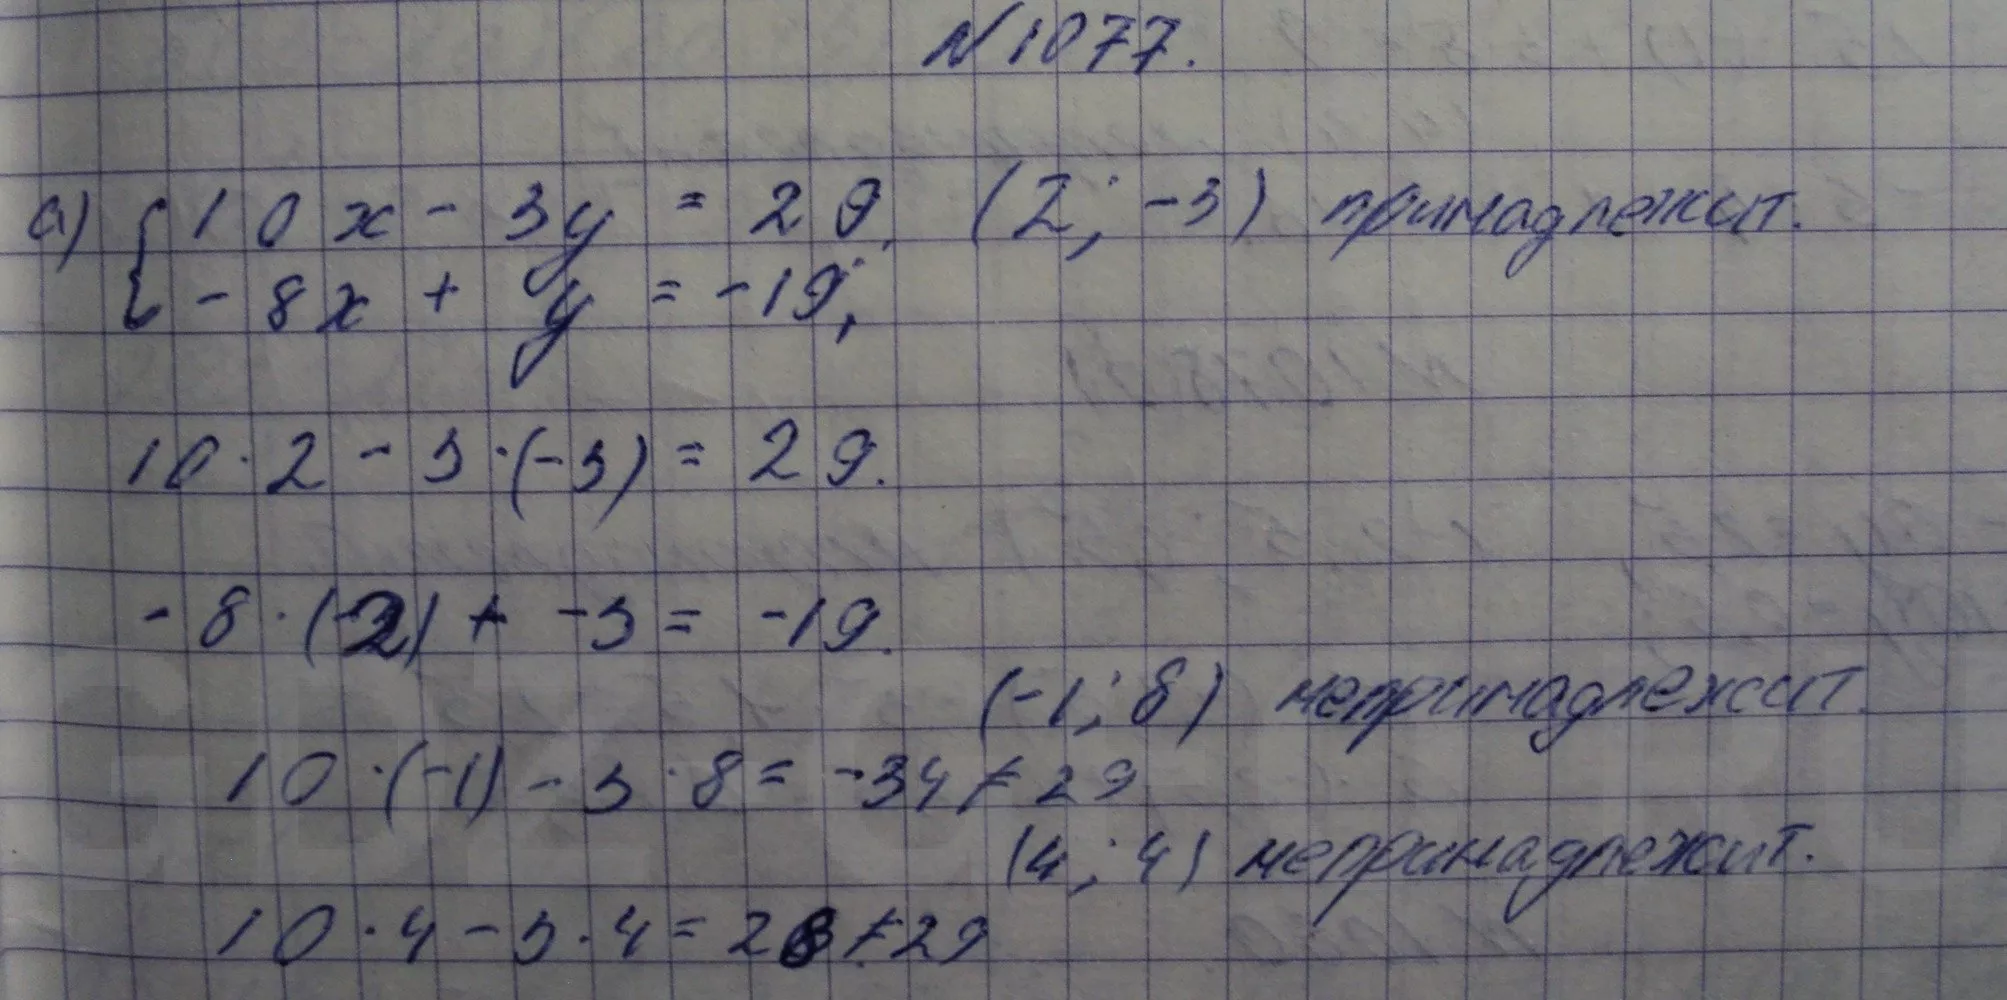 №1077.
а) { 10x - 3y = 29, (2; -3) принадлежит.
- 8x + y = -19;
10 · 2 - 3 · (-3) = 29.
- 8 · (-2) + -3 = -19.
(-1; 8) непринадлежит.
10 · (-1) - 3 · 8 = -34 ≠ 29
(4; 4) непринадлежит.
10 · 4 - 3 · 4 = 28 ≠ 29